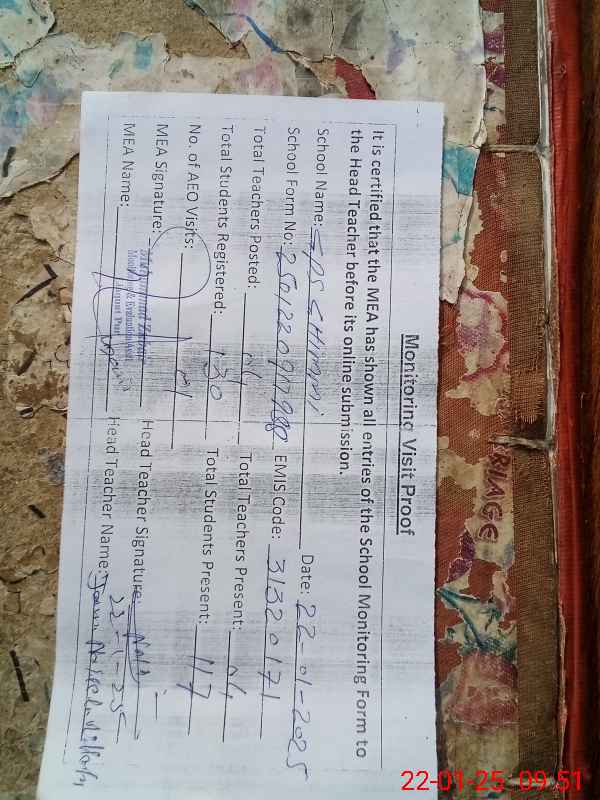 Monitoring Visit Proof
It is certified that the MEA has shown all entries of the School Monitoring Form to
the Head Teacher before its online submission.
School Name: GPS Date: 22-01-2025
School Form No: EMIS Code: 31320171
Total Teachers Posted: 04 Total Teachers Present: 04
Total Students Registered: 130 Total Students Present: 117
No. of AEO Visits:
MEA Signature: Head Teacher Signature:
22-1-25
MEA Name: Head Teacher Name:
RIAGE
22-01-25 09:51